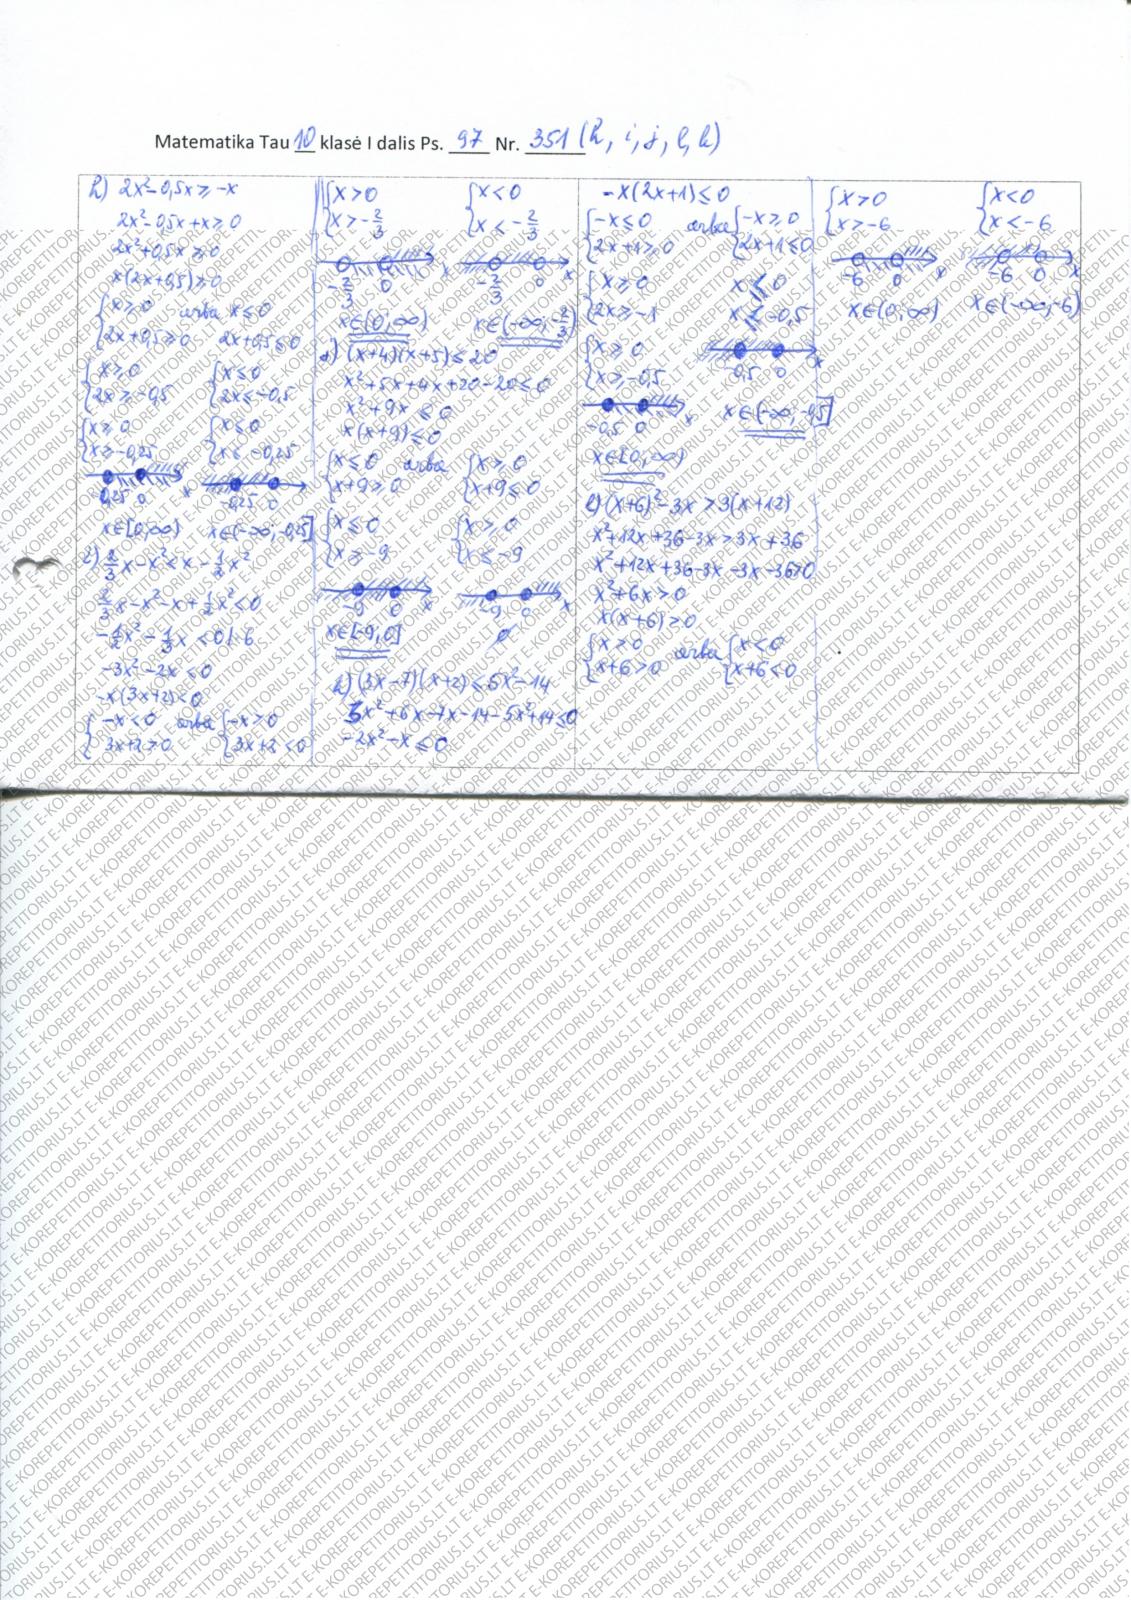 Matematika Tau 10 klasė I dalis Ps. 97 Nr. 351 (h, i, j, l, k)
h) 2x²-0,5x ≥ -x
2x²-0,5x+x ≥ 0
2x²+0,5x ≥ 0
x(2x+0,5) ≥ 0
{x ≥ 0 arba x ≤ 0
{2x+0,5 ≥ 0 2x+0,5 ≤ 0
{x ≥ 0 {x ≤ 0
{2x ≥ -0,5 {2x ≤ -0,5
{x ≥ 0 {x ≤ 0
{x ≥ -0,25 {x ≤ -0,25
-0,25 0 x -0,25 0
x∈[0;∞) x∈(-∞;-0,25]
i) 2/3x - x² < x - 1/2x²
2/3x - x² - x + 1/2x² < 0
-1/2x² - 1/3x < 0 |·6
-3x² - 2x < 0
-x(3x+2) < 0
{-x < 0 arba {-x > 0
{3x+2 > 0 {3x+2 < 0
{x > 0 {x < 0
{x > -2/3 {x < -2/3
-2/3 0 x -2/3 0 x
x∈(0;∞) x∈(-∞;-2/3)
j) (x+4)(x+5) ≤ 20
x²+5x+4x+20-20 ≤ 0
x²+9x ≤ 0
x(x+9) ≤ 0
{x ≤ 0 arba {x ≥ 0
{x+9 ≥ 0 {x+9 ≤ 0
{x ≤ 0 {x ≥ 0
{x ≥ -9 {x ≤ -9
-9 0 x -9 0 x
x∈[-9;0] ∅
k) (3x-7)(x+2) ≤ 5x²-14
3x²+6x-7x-14-5x²+14 ≤ 0
-2x²-x ≤ 0
-x(2x+1) ≤ 0
{-x ≤ 0 arba {-x ≥ 0
{2x+1 ≥ 0 {2x+1 ≤ 0
{x ≥ 0 x ≤ 0
{2x ≥ -1 x ≤ -0,5
{x ≥ 0 -0,5 0 x
{x ≥ -0,5
-0,5 0 x x∈(-∞;-0,5]
x∈[0;∞)
l) (x+6)²-3x > 3(x+12)
x²+12x+36-3x > 3x+36
x²+12x+36-3x-3x-36 > 0
x²+6x > 0
x(x+6) > 0
{x > 0 arba {x < 0
{x+6 > 0 {x+6 < 0
{x > 0 {x < 0
{x > -6 {x < -6
-6 0 x -6 0 x
x∈(0;∞) x∈(-∞;-6)
E-KOREPETITORIUS.LT